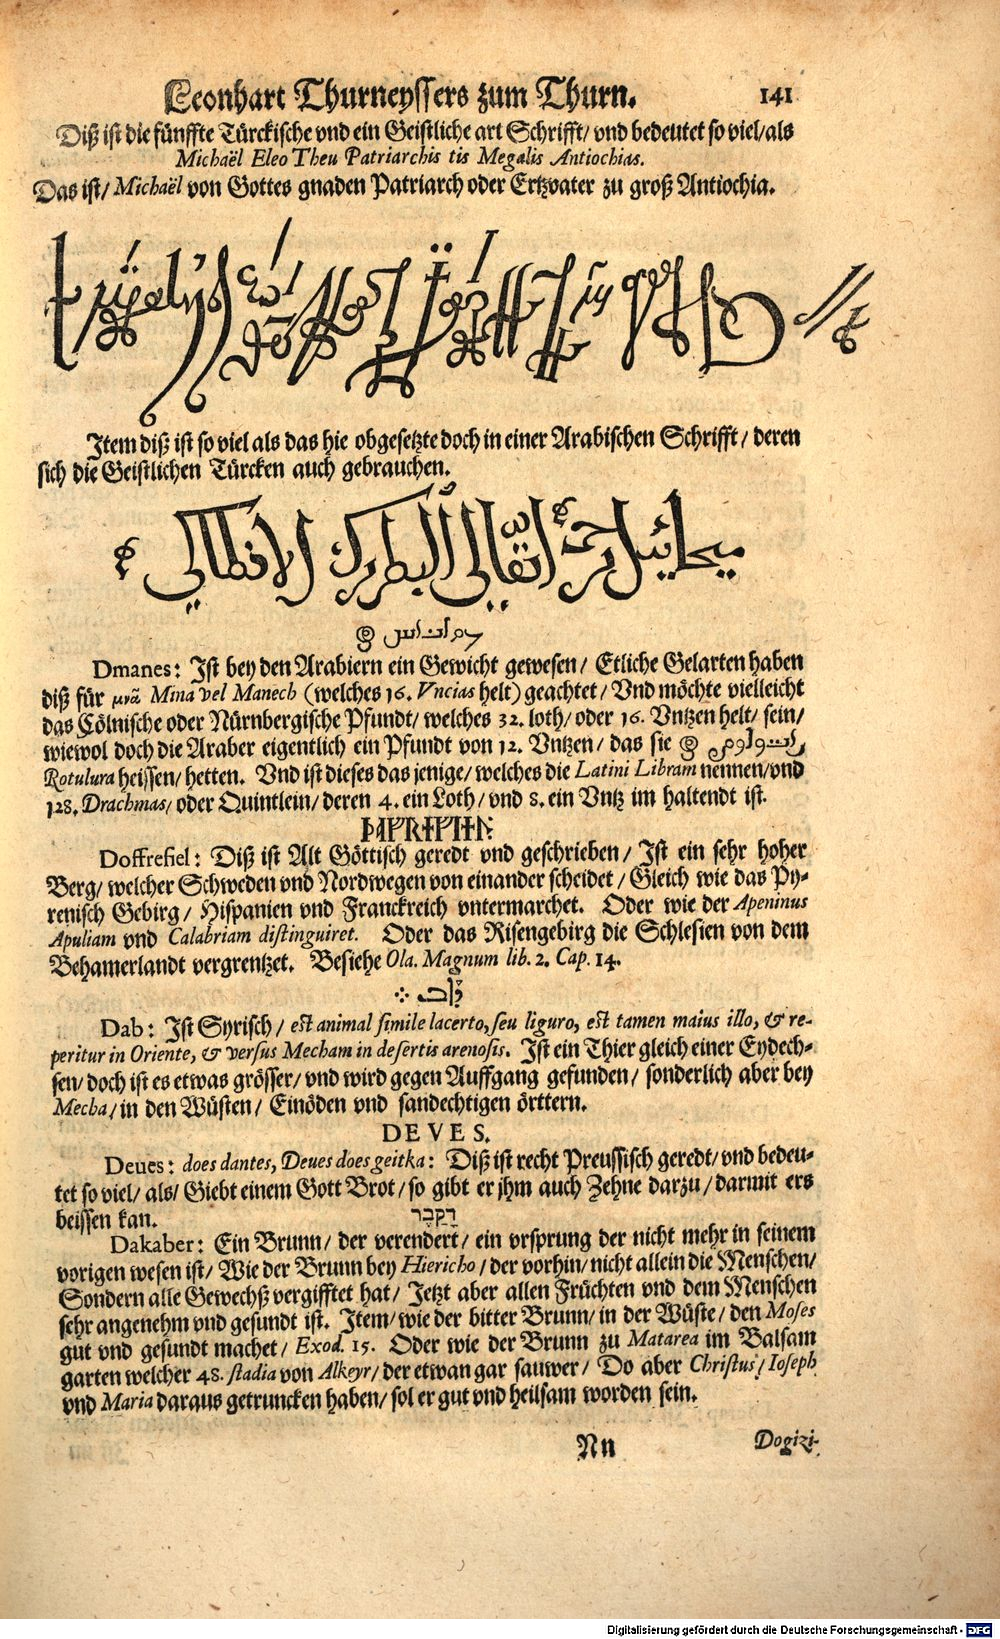 Leonhart Thurneyssers zum Thurn. 141
Diß ist die fünffte Türckische vnd ein Geistliche art Schrifft/ vnd bedeutet so viel/ als
Michaël Eleo Theu Patriarchis tis Megalis Antiochias.
Das ist/ Michaël von Gottes gnaden Patriarch oder Ertzvater zu groß Antiochia.
Item diß ist so viel als das hie obgesetzte doch in einer Arabischen Schrifft/ deren
sich die Geistlichen Türcken auch gebrauchen.
Dmanes: Ist bey den Arabiern ein Gewicht gewesen/ Etliche Gelarten haben
diß für μνᾶ Mina vel Manech (welches 16. Vncias helt) geachtet/ Vnd möchte vielleicht
das Cölnische oder Nürnbergische Pfundt/ welches 32. loth/ oder 16. Vntzen helt/ sein/
wiewol doch die Araber eigentlich ein Pfundt von 12. Vntzen/ das sie
Rotulura heissen/ hetten. Vnd ist dieses das jenige/ welches die Latini Libram nennen/ vnd
128. Drachmas/ oder Quintlein/ deren 4. ein Loth/ vnd 8. ein Vntz im haltendt ist.
Doffrefiel: Diß ist Alt Göttisch geredt vnd geschrieben/ Ist ein sehr hoher
Berg/ welcher Schweden vnd Nordwegen von einander scheidet/ Gleich wie das Py-
renisch Gebirg/ Hispanien vnd Franckreich vntermarchet. Oder wie der Apeninus
Apuliam vnd Calabriam distinguiret. Oder das Risengebirg die Schlesien von dem
Behamerlandt vergrentzet. Besiehe Ola. Magnum lib. 2. Cap. 14.
Dab: Ist Syrisch/ est animal simile lacerto, seu liguro, est tamen maius illo, & re-
peritur in Oriente, & versus Mecham in desertis arenosis. Ist ein Thier gleich einer Eydech-
sen/ doch ist es etwas grösser/ vnd wird gegen Auffgang gefunden/ sonderlich aber bey
Mecha/ in den Wüsten/ Einöden vnd sandechtigen örttern.
DEVES.
Deues: does dantes, Deues does geitka: Diß ist recht Preussisch geredt/ vnd bedeu-
tet so viel/ als/ Giebt einem Gott Brot/ so gibt er jhm auch Zehne darzu/ darmit ers
beissen kan. דַקַבֶר
Dakaber: Ein Brunn/ der verendert/ ein vrsprung der nicht mehr in seinem
vorigen wesen ist/ Wie der Brunn bey Hiericho/ der vorhin/ nicht allein die Menschen/
Sondern alle Gewechß vergifftet hat/ Jetzt aber allen Früchten vnd dem Menschen
sehr angenehm vnd gesundt ist. Item/ wie der bitter Brunn/ in der Wüste/ den Moses
gut vnd gesundt machet/ Exod. 15. Oder wie der Brunn zu Matarea im Balsam
garten welcher 48. stadia von Alkeyr/ der etwan gar sauwer/ Do aber Christus/ Ioseph
vnd Maria daraus getruncken haben/ sol er gut vnd heilsam worden sein.
Nn Dogizi-
Digitalisierung gefördert durch die Deutsche Forschungsgemeinschaft - DFG